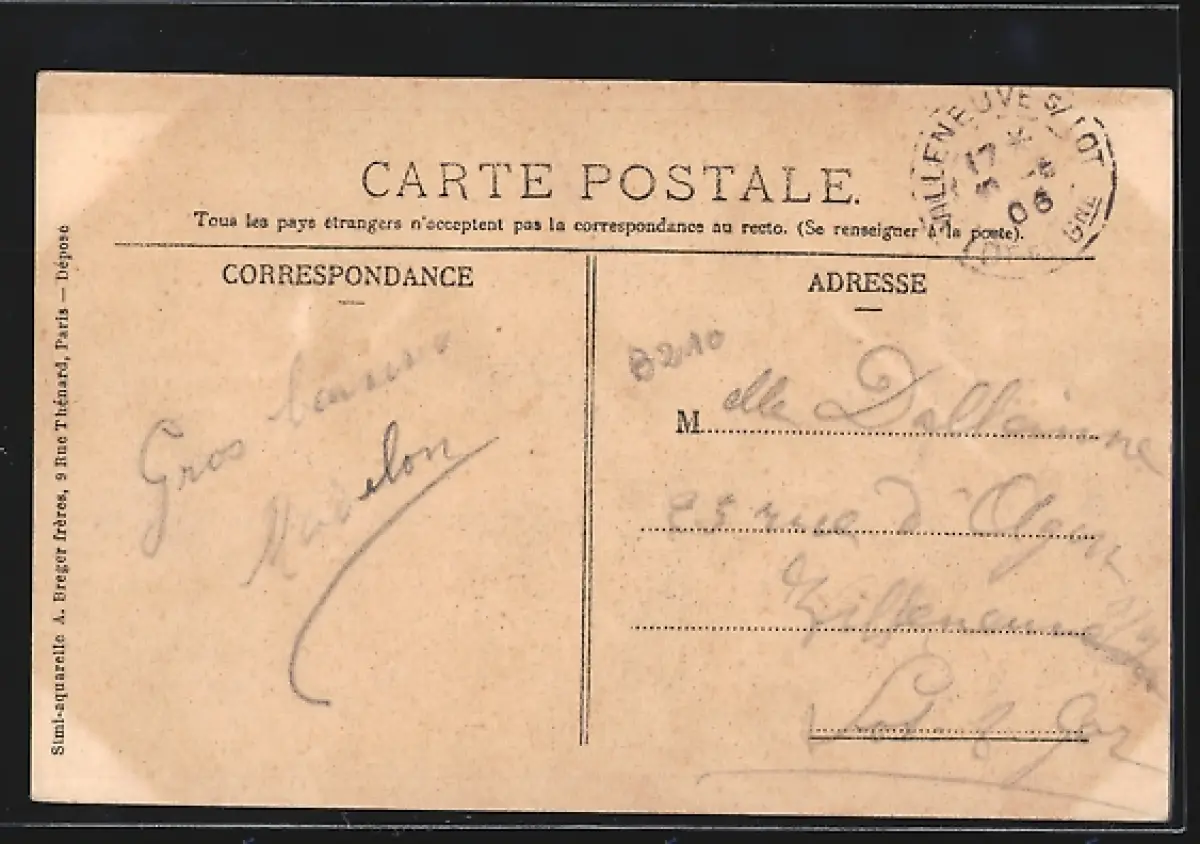 VILLENEUVE S/ LOT
17 *
5 -6
06
LOT GNE
CARTE POSTALE.
Tous les pays étrangers n'acceptent pas la correspondance au recto. (Se renseigner à la poste).
CORRESPONDANCE
Gros
Madelon
ADRESSE
3210
M elle
rue d'Agen
Villeneuve
Lot & Gar
Simi-aquarelle A. Breger frères, 9 Rue Thénard, Paris — Déposé